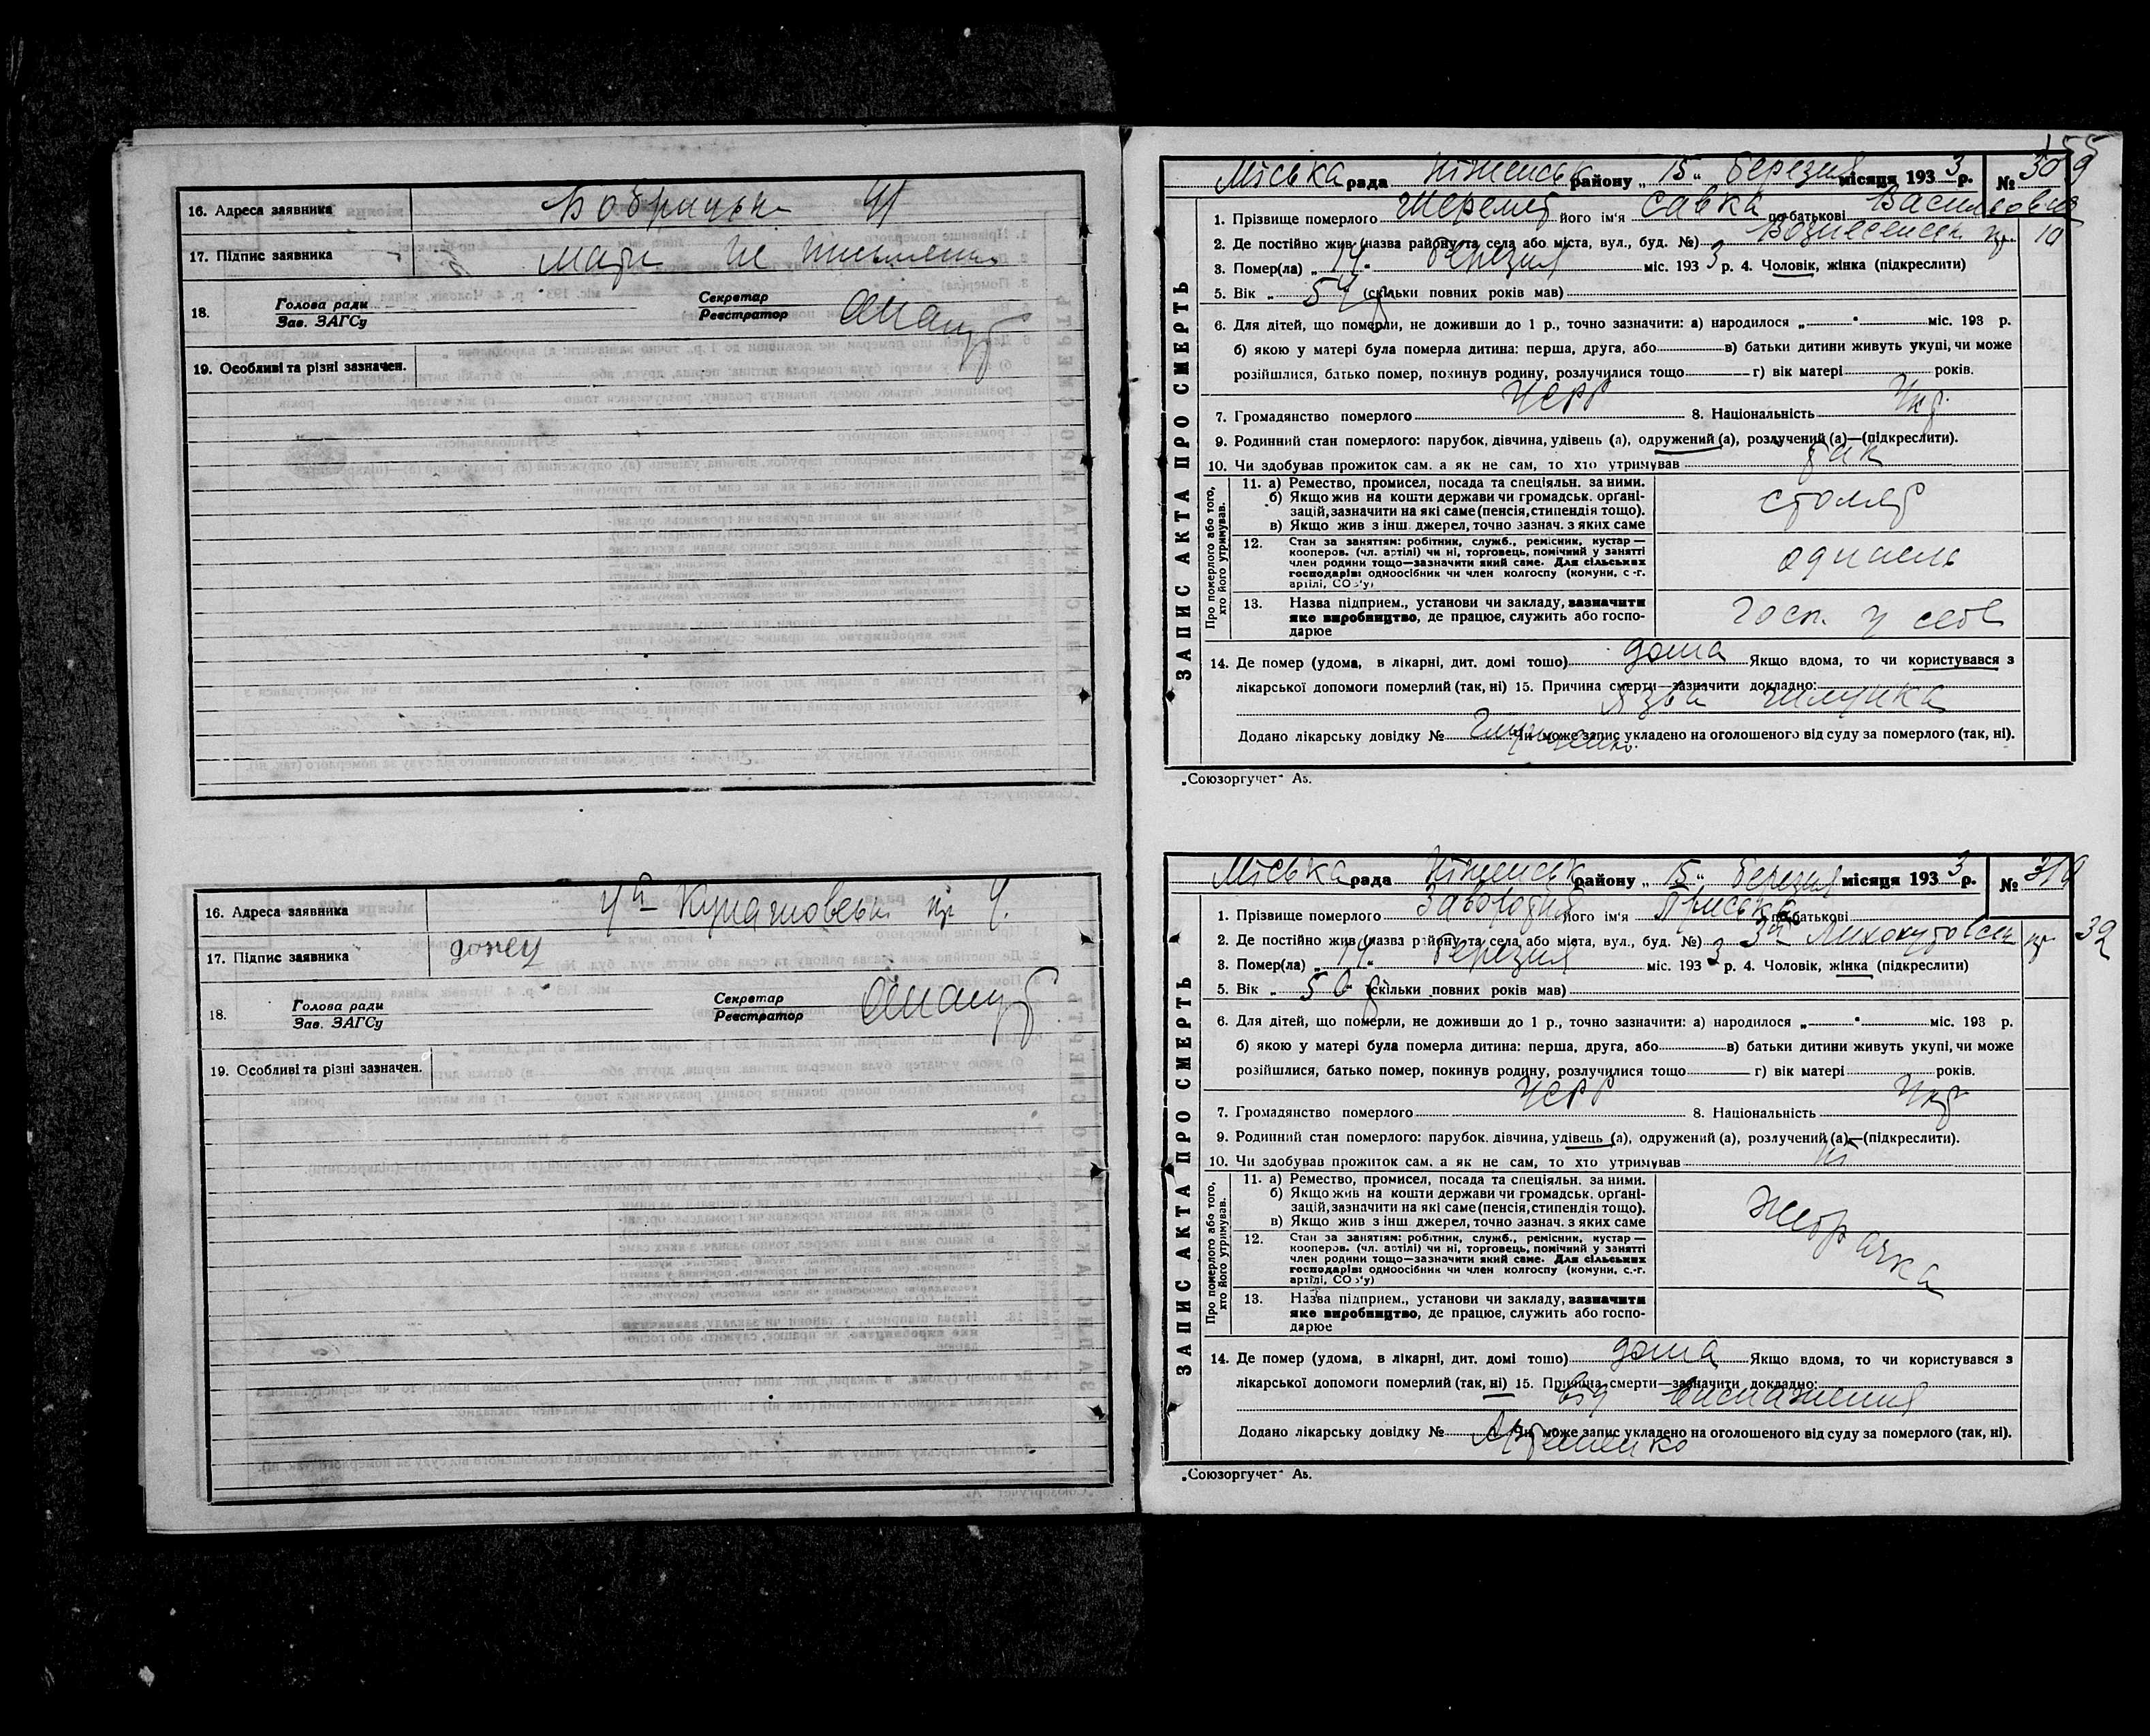 16. Адреса заявника Бобрицька 41
17. Підпис заявника мати не письменна
18. Голова ради
Зав. ЗАГСу
Секретар
Реєстратор
19. Особливі та різні зазначен.
16. Адреса заявника Кунашовськ пр 4.
17. Підпис заявника
18. Голова ради
Зав. ЗАГСу
Секретар
Реєстратор
19. Особливі та різні зазначен.
155
Міська рада Ніженськ району „15" березня місяця 1933 р. № 309
ЗАПИС АКТА ПРО СМЕРТЬ
1. Прізвище померлого Шеремет його ім'я Савка по батькові Васильович
2. Де постійно жив (назва району та села або міста, вул., буд. №) Вознесенськ пр. 10
3. Помер(ла) „14" березня міс. 1933 р. 4. Чоловік, жінка (підкреслити)
5. Вік „ 54 р (скільки повних років мав)
6. Для дітей, що померли, не доживши до 1 р., точно зазначити: а) народилося „ " міс. 193 р.
б) якою у матері була померла дитина: перша, друга, або в) батьки дитини живуть укупі, чи може
розійшлися, батько помер, покинув родину, розлучилися тощо г) вік матері років.
7. Громадянство померлого УСРР 8. Національність Укр.
9. Родинний стан померлого: парубок, дівчина, удівець (а), одружений (а), розлучений (а)—(підкреслити).
10. Чи здобував прожиток сам, а як не сам, то хто утримував так
Про померлого або того, хто його утримував.
11. а) Ремество, промисел, посада та спеціяльн. за ними.
б) Якщо жив на кошти держави чи громадськ. орґані-
зацій, зазначити на які саме (пенсія, стипендія тощо).
в) Якщо жив з інш джерел, точно зазнач. з яких саме
столяр
12. Стан за заняттям: робітник, служб., ремісник, кустар—
кооперов. (чл. артілі) чи ні, торговець, помічний у занятті
член родини тощо—зазначити який саме. Для сільських
господарів: одноосібник чи член колгоспу (комуни, с.-г.
артілі, СОЗ'у)
13. Назва підприєм., установи чи закладу, зазначити
яке виробництво, де працює, служить або госпо-
дарює
госп. у себе
14. Де помер (удома, в лікарні, дит. домі тощо) дома Якщо вдома, то чи користувався з
лікарської допомоги померлий (так, ні) 15. Причина смерти—зазначити докладно:
язва шлунка
Додано лікарську довідку № Чи може запис укладено на оголошеного від суду за померлого (так, ні).
„Союзоргучет" Аз.
Міська рада Ніженськ району „15" березня місяця 1933 р. № 310
ЗАПИС АКТА ПРО СМЕРТЬ
1. Прізвище померлого його ім'я Приська по батькові
2. Де постійно жив (назва району та села або міста, вул., буд. №) пр 32
3. Помер(ла) „14" березня міс. 1933 р. 4. Чоловік, жінка (підкреслити)
5. Вік „ 50 р (скільки повних років мав)
6. Для дітей, що померли, не доживши до 1 р., точно зазначити: а) народилося „ " міс. 193 р.
б) якою у матері була померла дитина: перша, друга, або в) батьки дитини живуть укупі, чи може
розійшлися, батько помер, покинув родину, розлучилися тощо г) вік матері років.
7. Громадянство померлого УСРР 8. Національність Укр
9. Родинний стан померлого: парубок, дівчина, удівець (а), одружений (а), розлучений (а)—(підкреслити).
10. Чи здобував прожиток сам, а як не сам, то хто утримував ні
Про померлого або того, хто його утримував.
11. а) Ремество, промисел, посада та спеціяльн. за ними.
б) Якщо жив на кошти держави чи громадськ. орґані-
зацій, зазначити на які саме (пенсія, стипендія тощо).
в) Якщо жив з інш джерел, точно зазнач. з яких саме
жебрачка
12. Стан за заняттям: робітник, служб., ремісник, кустар—
кооперов. (чл. артілі) чи ні, торговець, помічний у занятті
член родини тощо—зазначити який саме. Для сільських
господарів: одноосібник чи член колгоспу (комуни, с.-г.
артілі, СОЗ'у)
13. Назва підприєм., установи чи закладу, зазначити
яке виробництво, де працює, служить або госпо-
дарює
14. Де помер (удома, в лікарні, дит. домі тощо) дома Якщо вдома, то чи користувався з
лікарської допомоги померлий (так, ні) 15. Причина смерти—зазначити докладно:
від виснаження
Додано лікарську довідку № Чи може запис укладено на оголошеного від суду за померлого (так, ні).
„Союзоргучет" Аз.